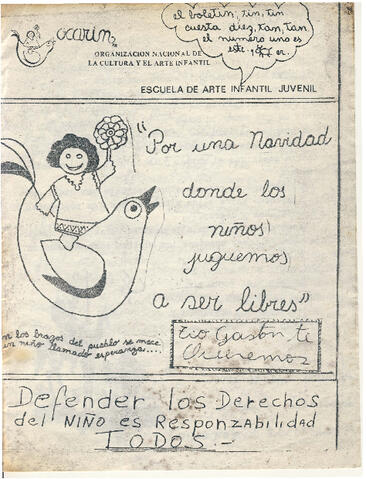 el boletin, tin, tin
cuesta diez, tan, tan
el numero uno es
este. er.
ocarin
ORGANIZACION NACIONAL DE
LA CULTURA Y EL ARTE INFANTIL
ESCUELA DE ARTE INFANTIL JUVENIL
"Por una Navidad
donde los
niños
juguemos
a ser libres"
n los brazos del pueblo se mece
un niño llamado esperanza....
tio Gastón te
Queremos
Defender los Derechos
del NIÑO es Responzabilidad
TODOS.-